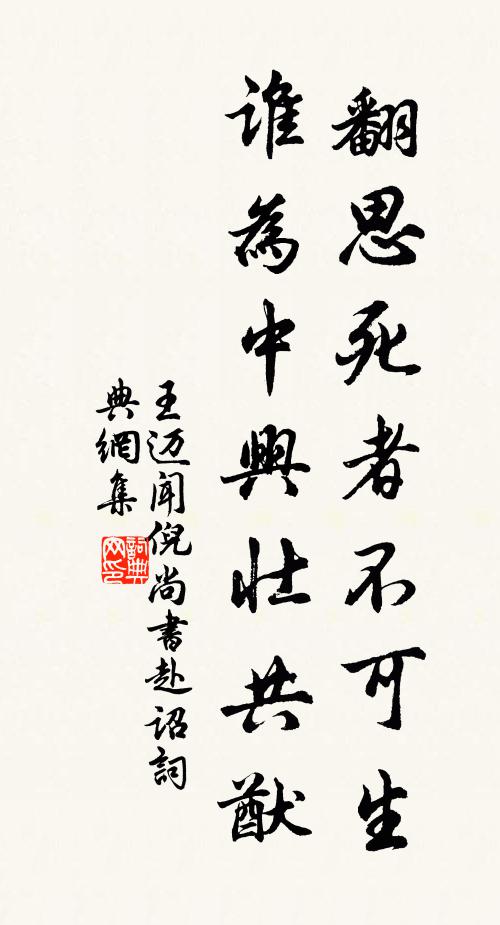 翻思死者不可生
誰為中興壯共猷
王迈闻倪尚書赴詔詞
典網集
詞典网印